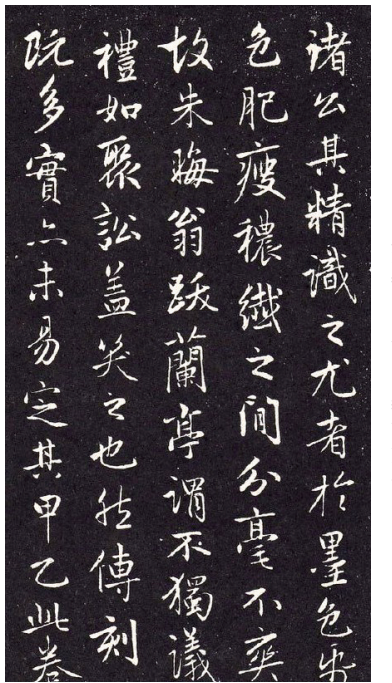 諸公其精識之尤者於墨色紙
色肥瘦穠纖之間分毫不爽
故朱晦翁跋蘭亭謂不獨議
禮如聚訟盖笑之也然傳刻
既多實亦未易定其甲乙此卷